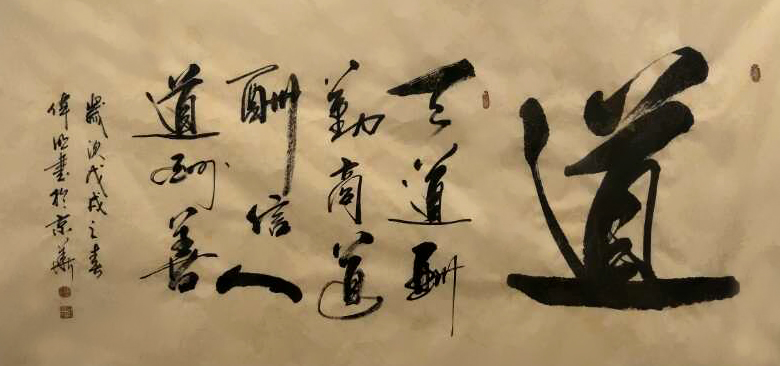 道
天道酬
勤商道
酬信人
道酬善
歲次戊戌之春
偉明書於京華